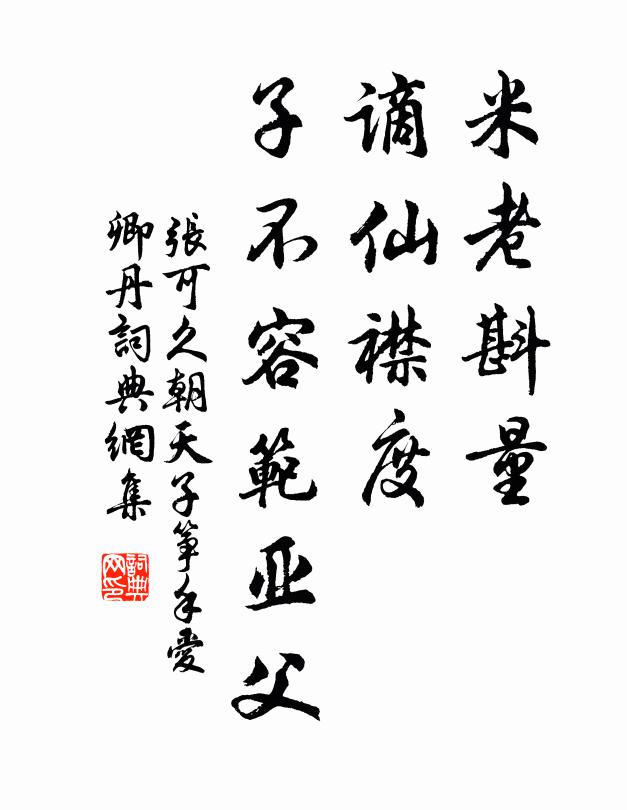 米老斟量
谪仙襟度
子不容範亚父
張可久朝天子箏手愛
卿丹詞典網集
詞典网印